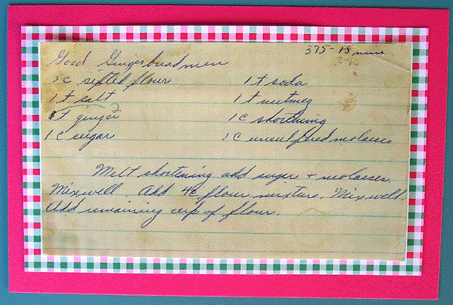 375 - 15 mins
Good Gingerbread men
5c sifted flour 1 t soda
1 t salt 1 t nutmeg
t ginger 1c shortening
1c sugar 1c unsulfured molasses
Melt shortening add sugar + molasses.
Mix well. Add 4c flour mixture. Mix well.
Add remaining cup of flour.